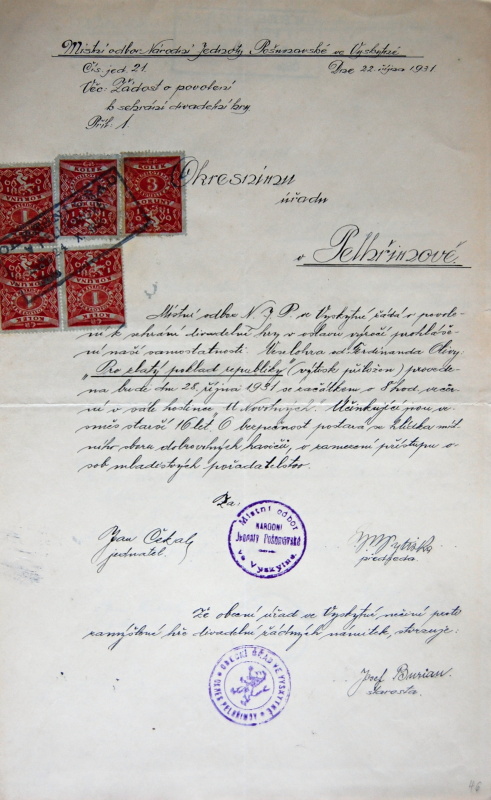 Místní odbor Národní Jednoty Pošumavské ve Vyskytné
Čís. jed. 21.
Dne 22. října 1931
Věc: Žádost o povolení
k sehrání divadelní hry
Příl. 1.
Okresnímu
úřadu
v Pelhřimově.
Místní odbor N. J. P. ve Vyskytné žádá o povole-
ní k sehrání divadelní hry v oslavu výročí prohláše-
ní naší samostatnosti. Veselohra od Ferdinanda Olivy:
"Pro zlatý poklad republiky" (výtisk přiložen) provede-
na bude dne 28. října 1931 se začátkem o 8 hod. večer-
ní v sále hostince "U Novotných". Účinkující jsou v
mési starší 16 let. O bezpečnost postará se hlídka míst-
ního sboru dobrovolných hasičů, o zamezení přístupu o-
sob mladistvých pořadatelstvo.
Za:
Jan Čekal
jednatel.
Místní odbor
NÁRODNÍ
Jednoty Pošumavské
ve Vyskytné
předseda
Že obecní úřad ve Vyskytné nečiní proti
zamýšlené hře divadelní žádných námitek, stvrzuje:
OBECNÍ ÚŘAD VE VYSKYTNÉ
OKRES PELHŘIMOV
Josef Burian
starosta.
KOLEK
3
KORUNY
1
KORUNA
1
KORUNA
46